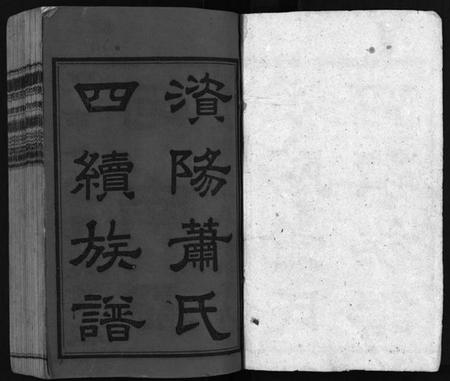 濱陽蕭氏
四續族譜